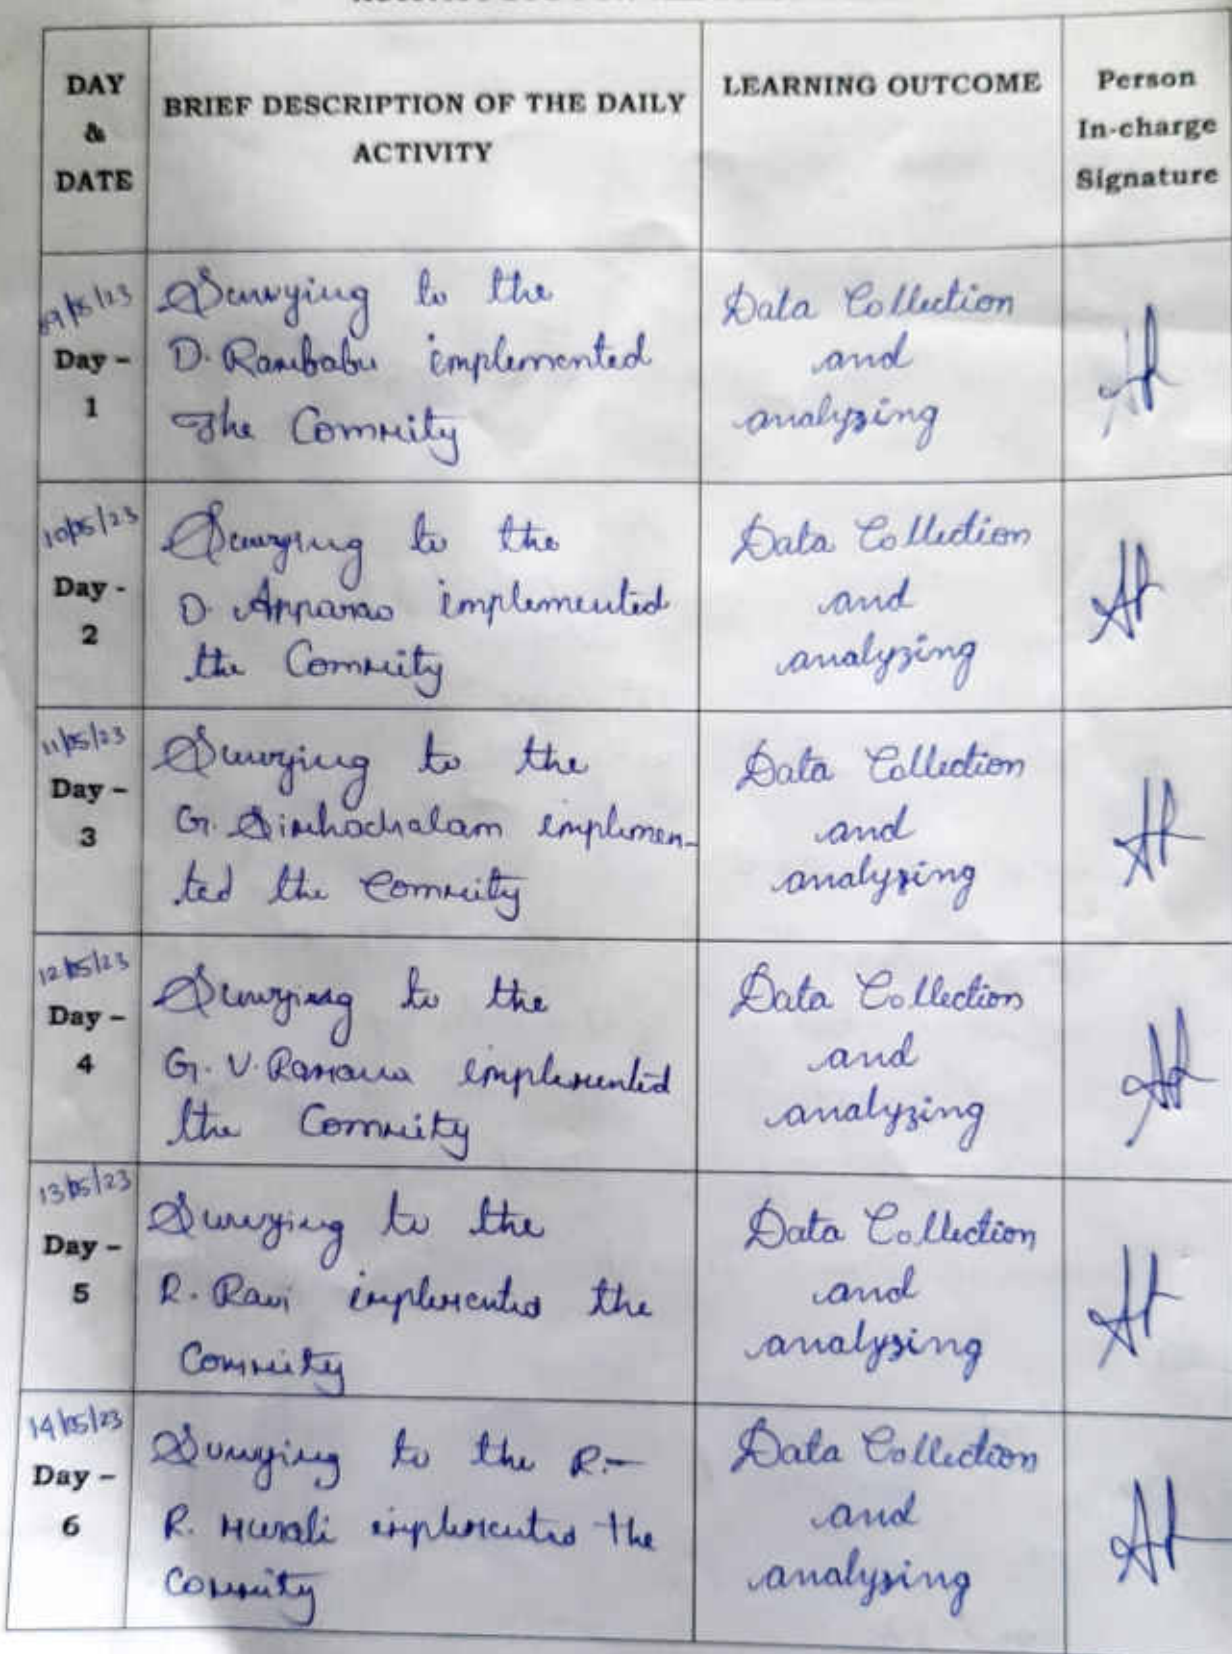 DAY
&
DATE
BRIEF DESCRIPTION OF THE DAILY
ACTIVITY
LEARNING OUTCOME
Person
In-charge
Signature
09/05/23
Day –
1
Surveying to the
D. Rambabu implemented
The Commity
Data Collection
and
analyzing
10/05/23
Day -
2
Surveying to the
D. Apparao implemented
the Commity
Data Collection
and
analyzing
11/05/23
Day –
3
Surveying to the
G. Simhachalam implemen-
ted the Commity
Data Collection
and
analyzing
12/05/23
Day –
4
Surveying to the
G. V. Ramana implemented
the Commity
Data Collection
and
analyzing
13/05/23
Day –
5
Surveying to the
R. Ravi implemented the
Commity
Data Collection
and
analyzing
14/05/23
Day –
6
Surveying to the R.–
R. Murali implemented the
Commity
Data Collection
and
analyzing